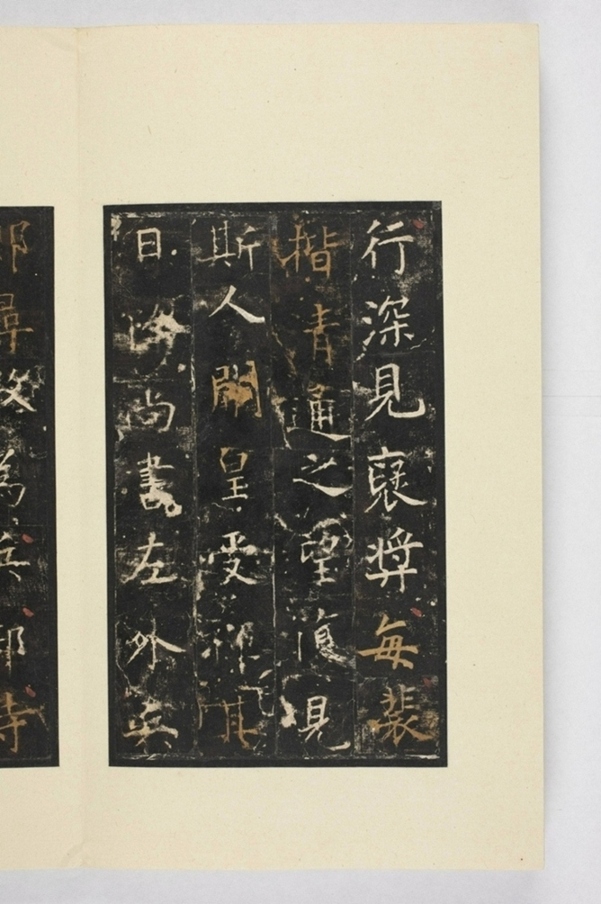 行深見裦奬每裴
楷清通之望復見
斯人開皇受禪其
日授尚書左外兵
郎尋改為兵部侍